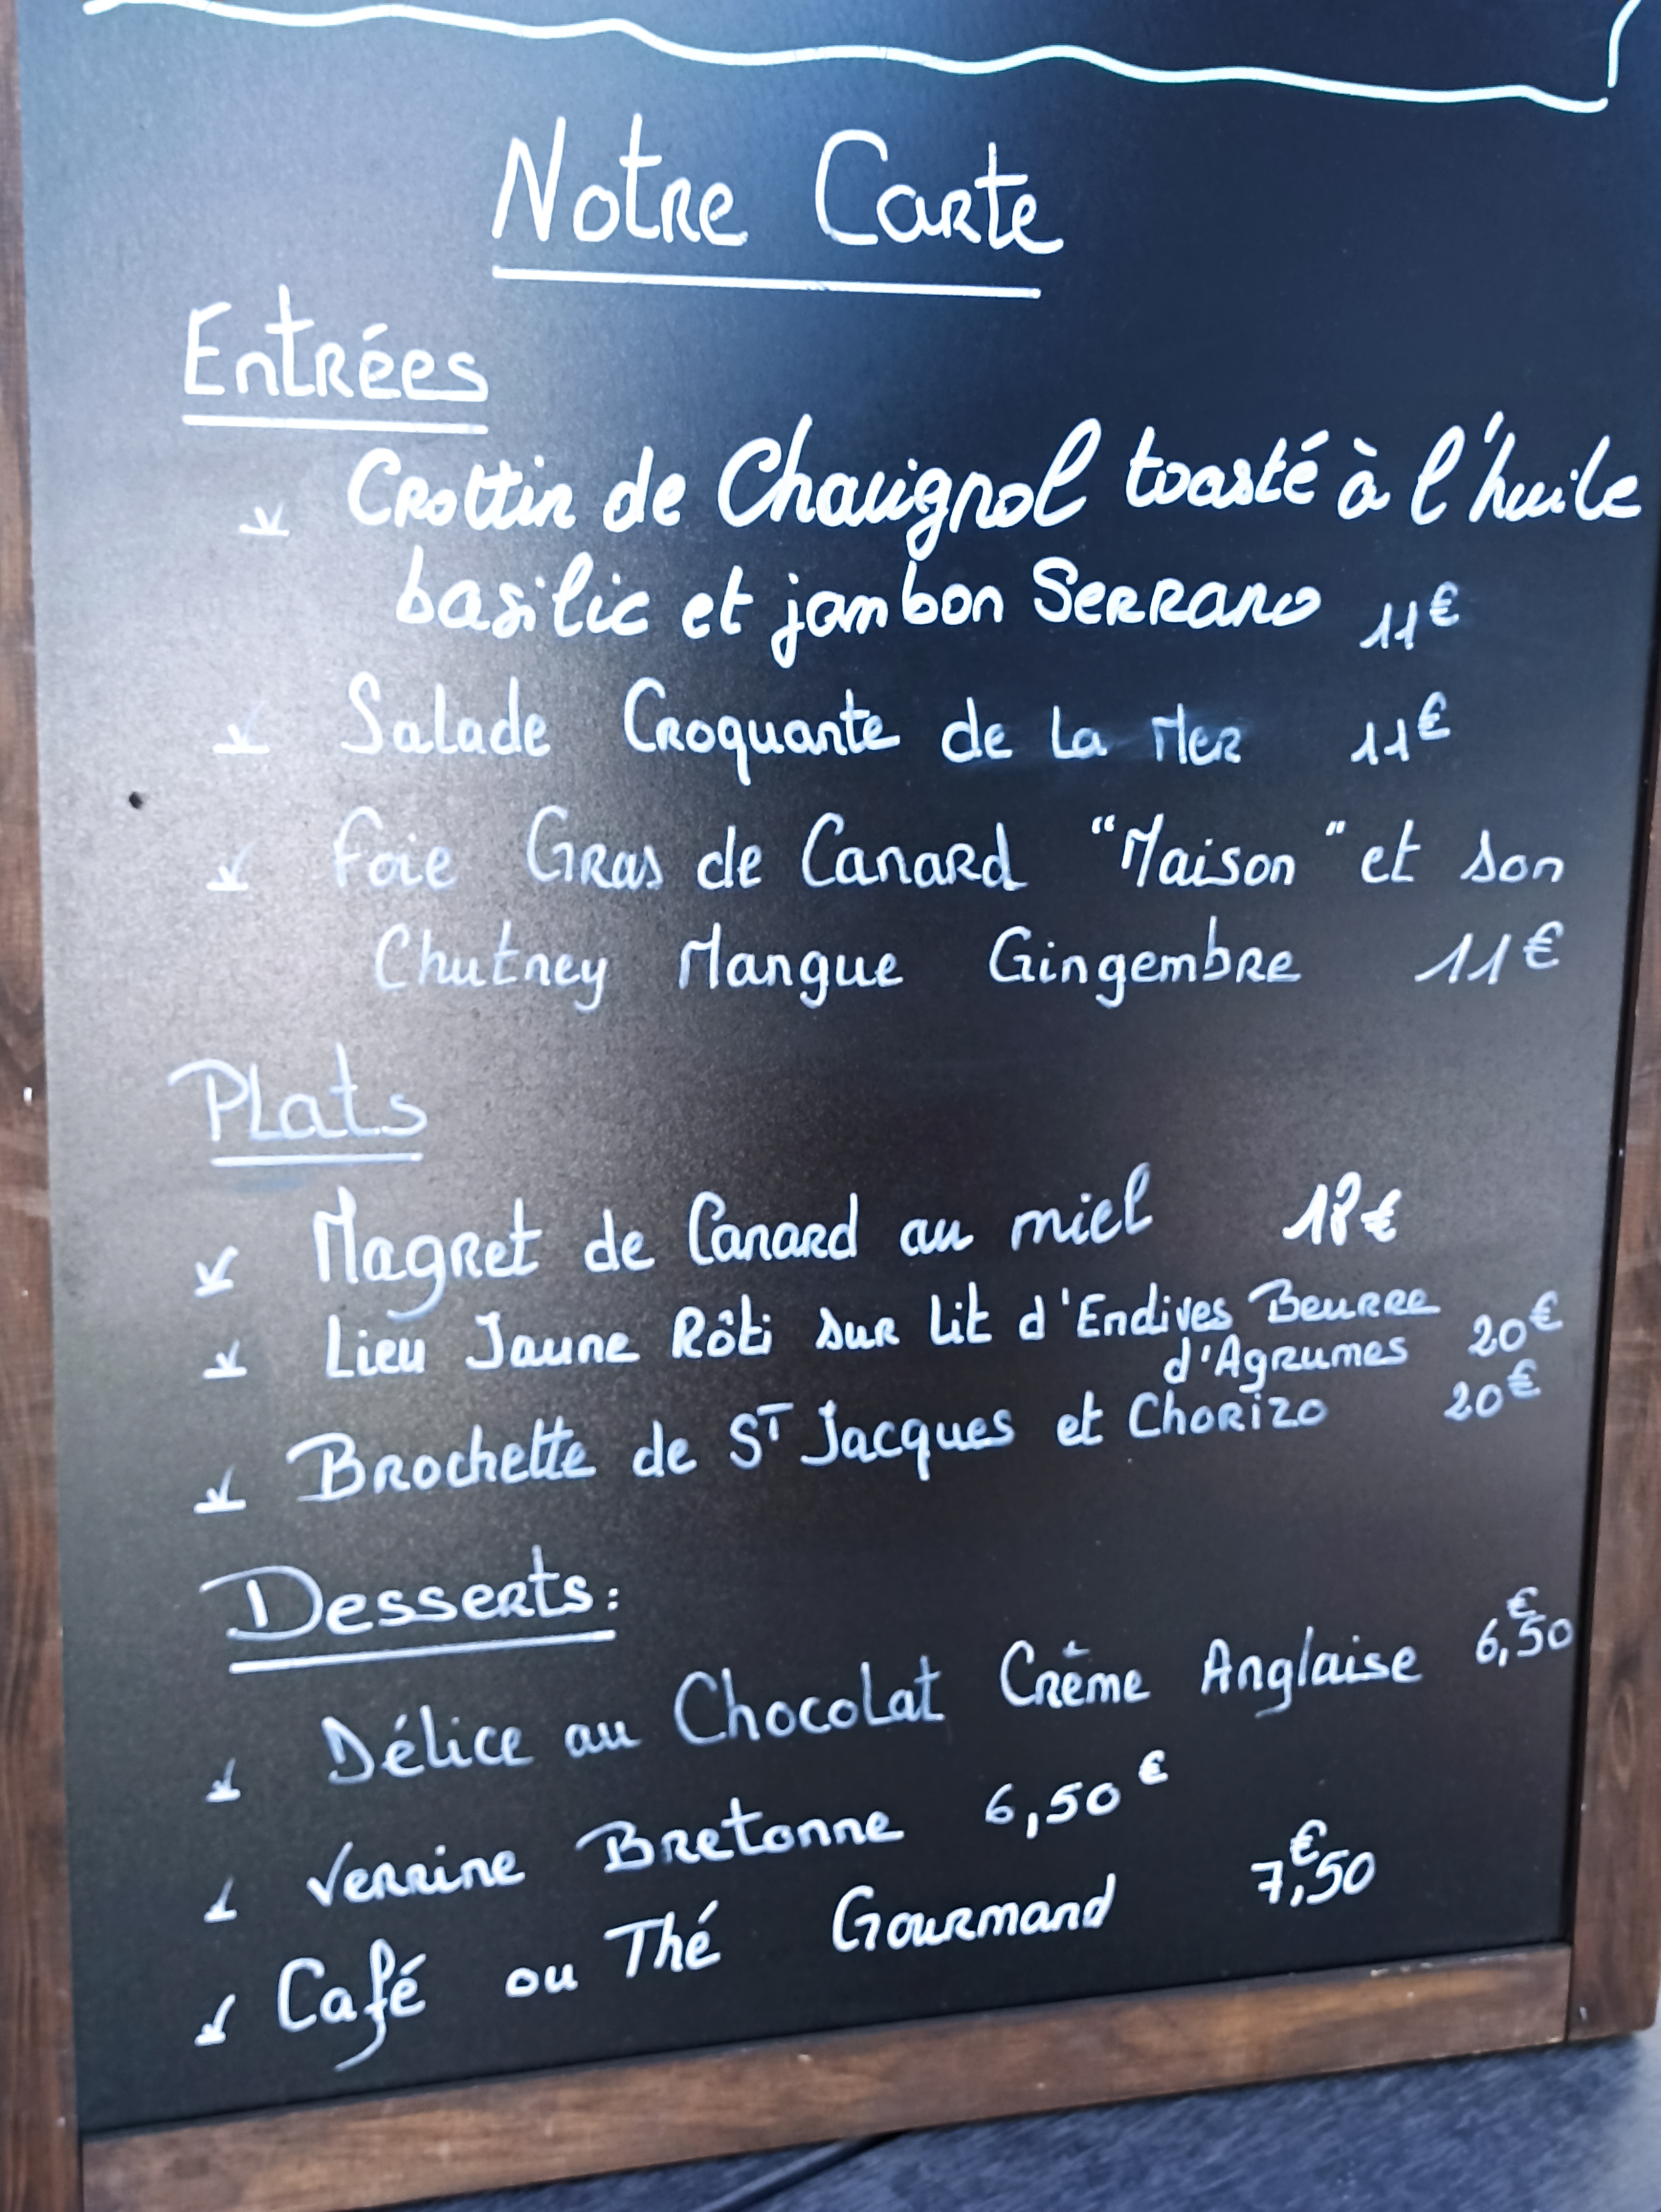 Notre Carte
Entrées
Crottin de Chavignol toasté à l'huile
basilic et jambon Serrano 11€
Salade Croquante de la Mer 11€
Foie Gras de Canard "Maison" et son
Chutney Mangue Gingembre 11€
Plats
Magret de Canard au miel 18€
Lieu Jaune Rôti sur lit d'Endives Beurre
d'Agrumes 20€
Brochette de ST Jacques et Chorizo 20€
Desserts:
Délice au Chocolat Crème Anglaise 6,€50
Verrine Bretonne 6,50€
Café ou Thé Gourmand 7,€50